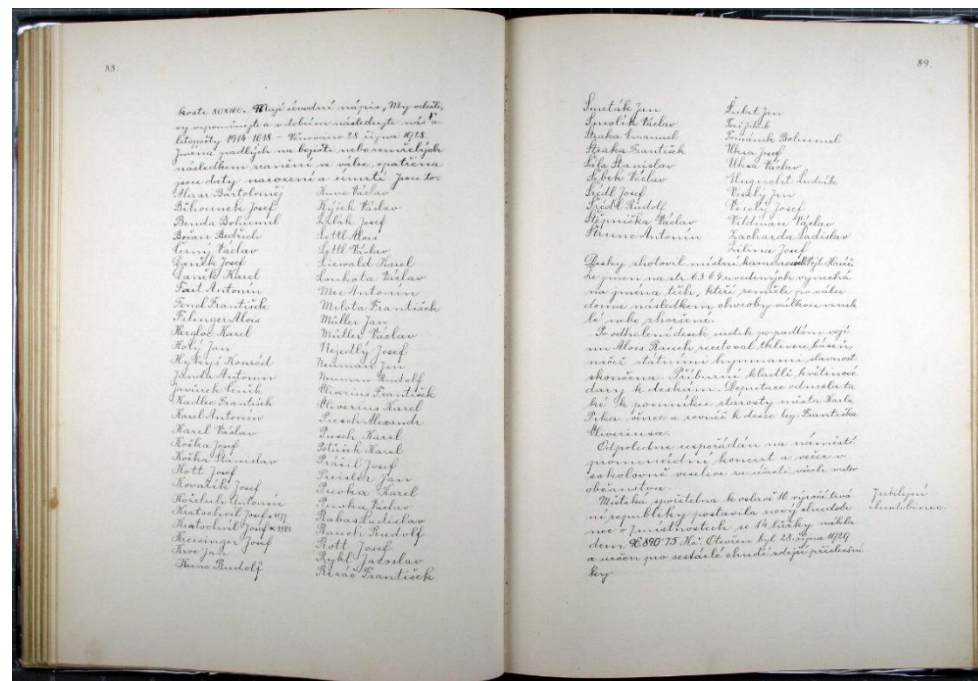 88.
kosti 80x160. Mají úvodní nápis „My odešli,
vy vzpomínejte a v dobrém následujte nás" a
letopočty 1914-1918 - Věnováno 28. října 1928.
Jména padlých na bojišti nebo zemřelých
následkem zranění ve válce, opatřena
jsou daty narození a úmrtí. Jsou to:
Bartoloměj
Josef
Benda Bohumil
Bedřich
Černý Václav
Daněk Josef
Daněk Karel
Fait Antonín
Fencl František
Filinger Alois
Hergloc Karel
Jan
Konrád
Janda Antonín
Javůrek
Kadlec František
Karel Antonín
Karel Václav
Kočka Josef
Kočka Stanislav
Kott Josef
Kovařík Josef
Antonín
Kratochvil Josef * 1877
Kratochvil Josef *
Kreisinger Josef
Jan
Kuno Rudolf
Kuno Václav
Václav
Josef
Lettl Alois
Lettl Václav
Liewald Karel
Loukota Václav
Mec Antonín
Milota František
Müller Jan
Müller Václav
Nejedlý Josef
Neuman Jan
Neuman Rudolf
Oliverius František
Oliverius Karel
Piesch Alexandr
Piesch Karel
Karel
Prášil Josef
Preisler Jan
Karel
Václav
Rabas Rastislav
Rausch Rudolf
Rott Josef
Rykl Jaroslav
František
89.
Smeták Jan
Smolík Václav
Straka Emanuel
Straka František
Šafa Stanislav
Šebek Václav
Šeidl Josef
Šeidl Rudolf
Štěpnička Václav
Antonín
Šubrt Jan
Tománek Bohumil
Uhra Josef
Uhra Václav
Ungnecht Ludvík
Veselý Jan
Veselý Josef
Vildman Václav
Zacharda Ladislav
Josef
Desky zhotovil místní kameník Vojt.
Ze jmen na str. 63 64 uvedených vynechá
na jména těch, kteří zemřeli po válce
doma následkem choroby válkou vznik
lé, nebo zhoršené.
Po odhalení desek padlým voji
nům Alois Rausch recitoval báseň,
načež státními hymnami slavnost
skončena. Příbuzní kladli květinové
dary k deskám. Deputace odnesla ta
ké k pomníku starosty města Karla
věnec a rovněž k desce leg. Františka
Oliveriusa.
Odpoledne uspořádán na náměstí
promenádní koncert a večer v
sokolovně veselice za účasti
občanstva.
Městská spořitelna k oslavě 10 výročí trvá
ní republiky postavila nový chudobi
nec o 7 místnostech se 14 lůžky nákla
dem 890.75 Kč. Otevřen byl 28. října 1929
a určen pro sestárlé chudé zdejší příslušní
ky.
Jubilejní
chudobinec.